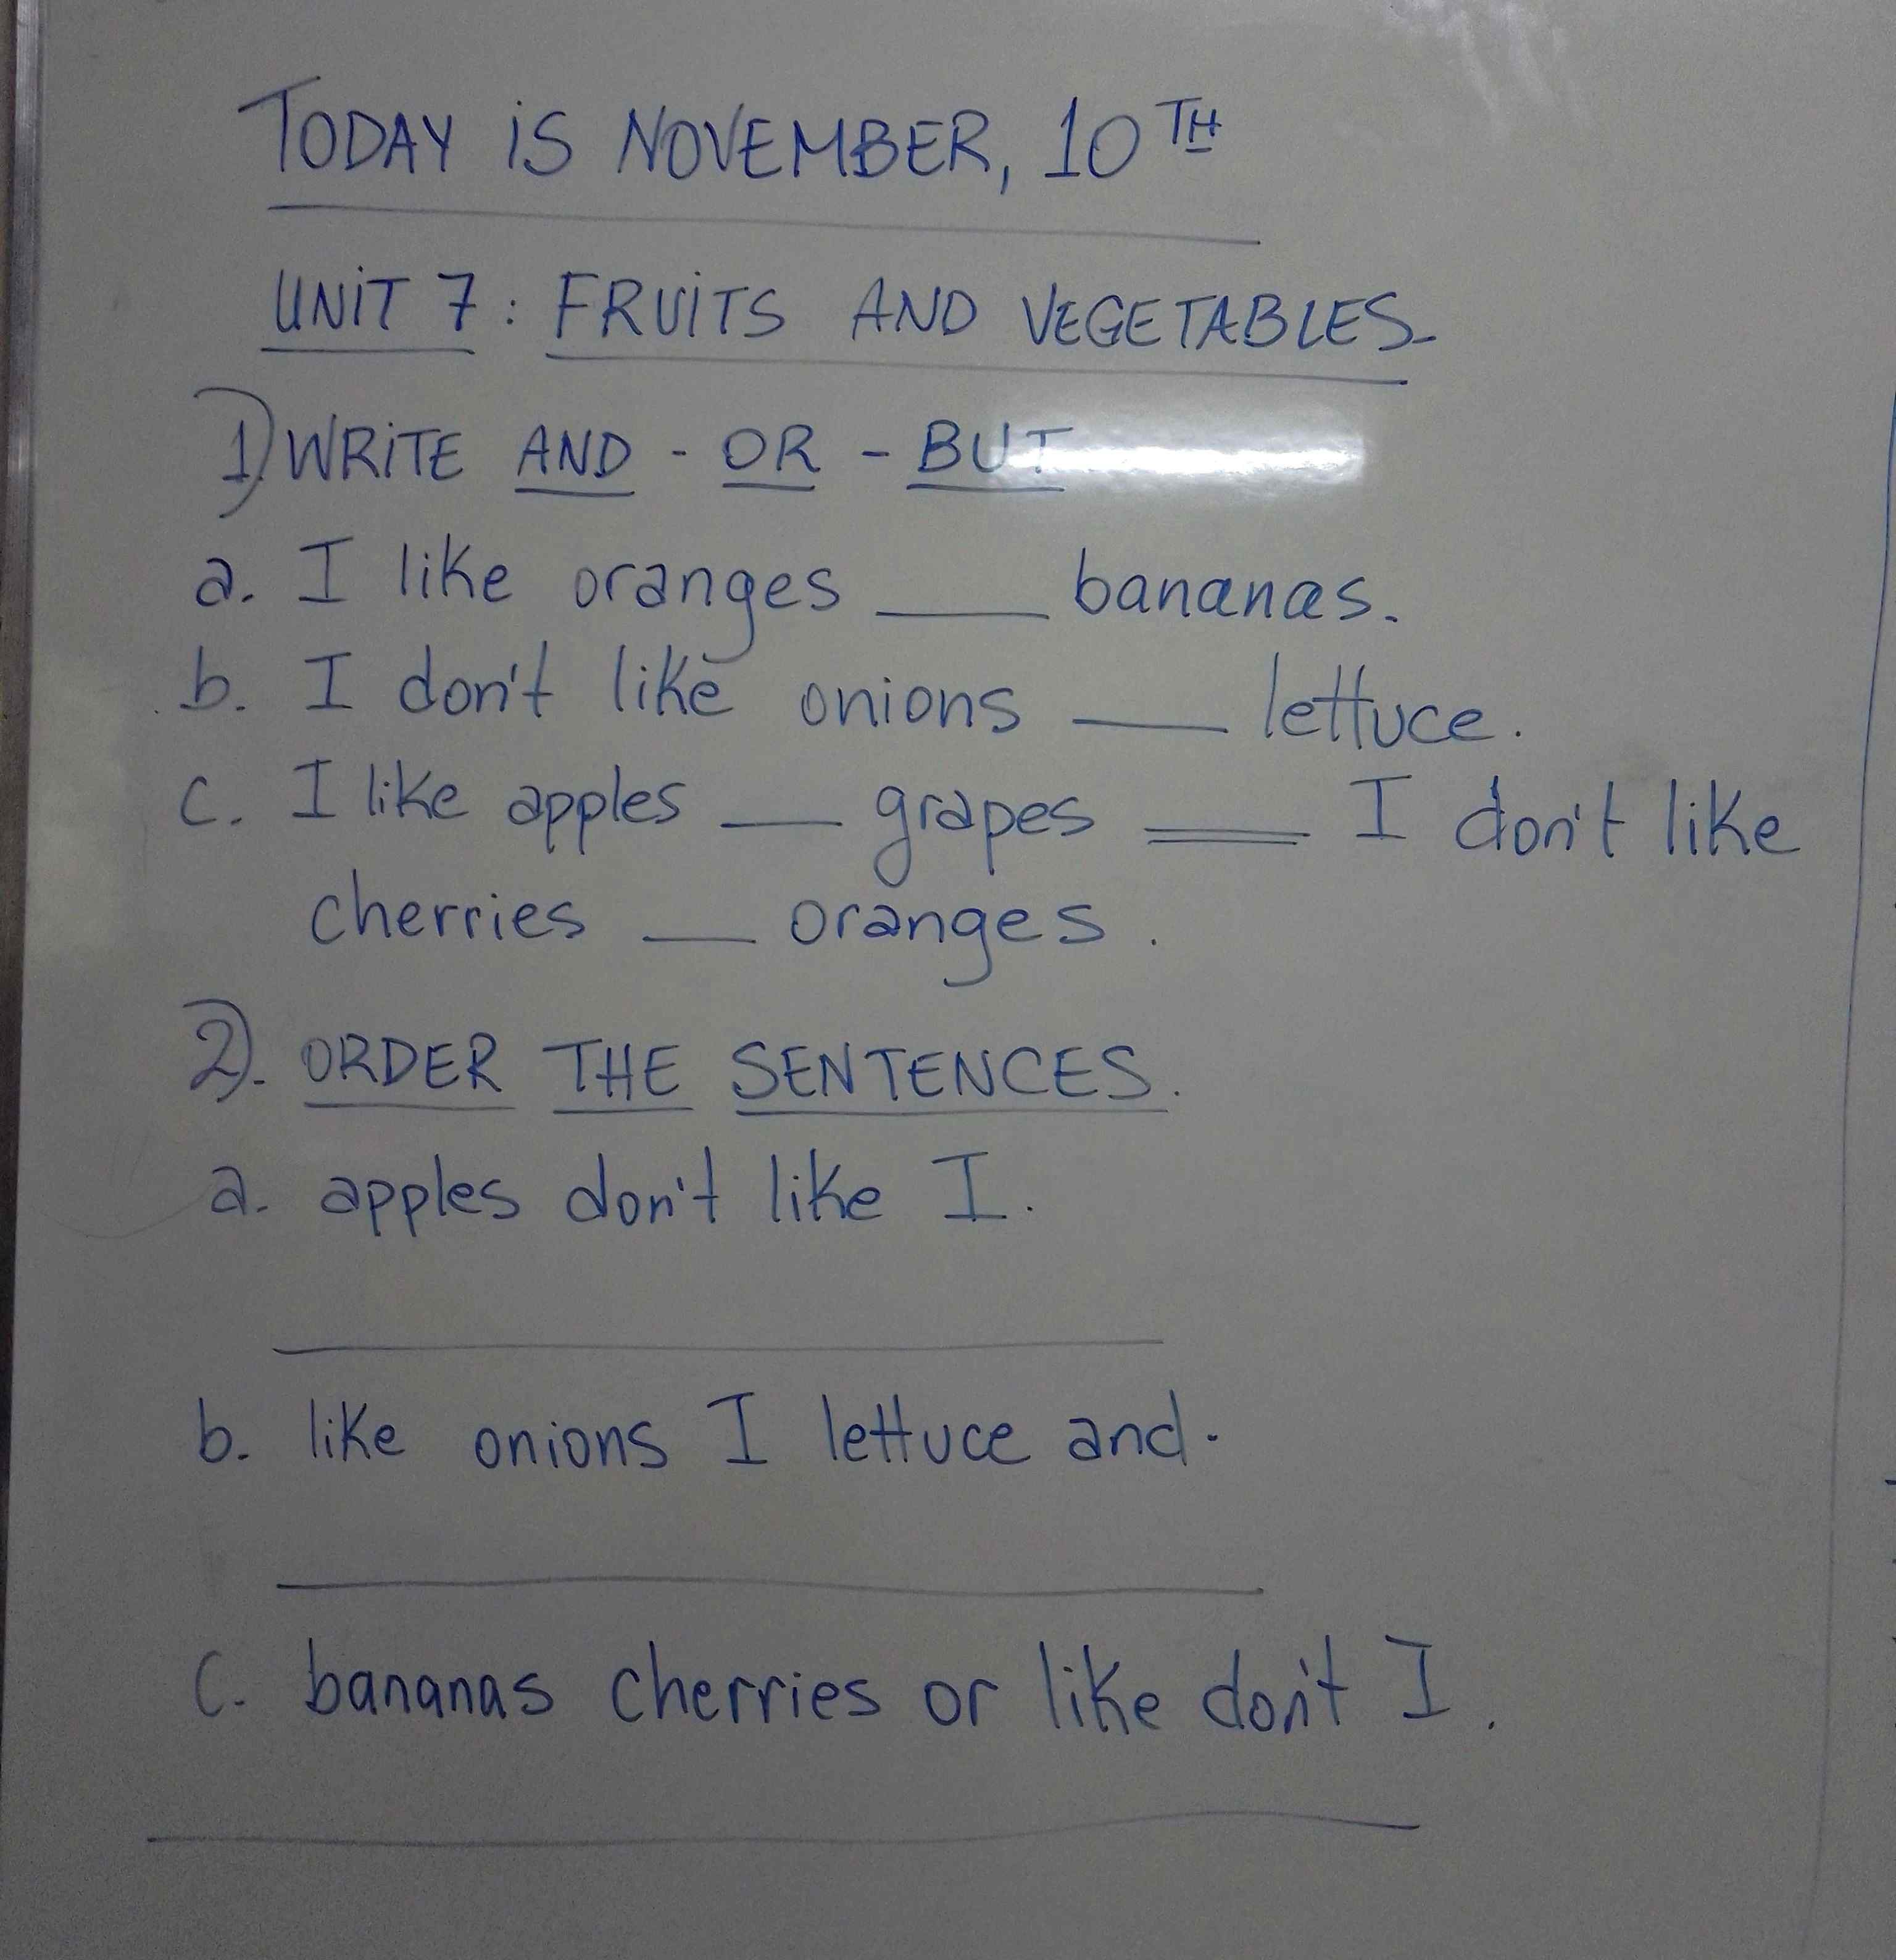 TODAY iS NOVEMBER, 10TH
UNiT 7: FRUiTS AND VEGETABLES
1) WRiTE AND - OR - BUT
a. I like oranges ___ bananas.
b. I don't like onions ___ lettuce.
c. I like apples ___ grapes ___ I don't like
cherries ___ oranges.
2). ORDER THE SENTENCES.
a. apples don't like I.
b. like onions I lettuce and.
c. bananas cherries or like don't I.